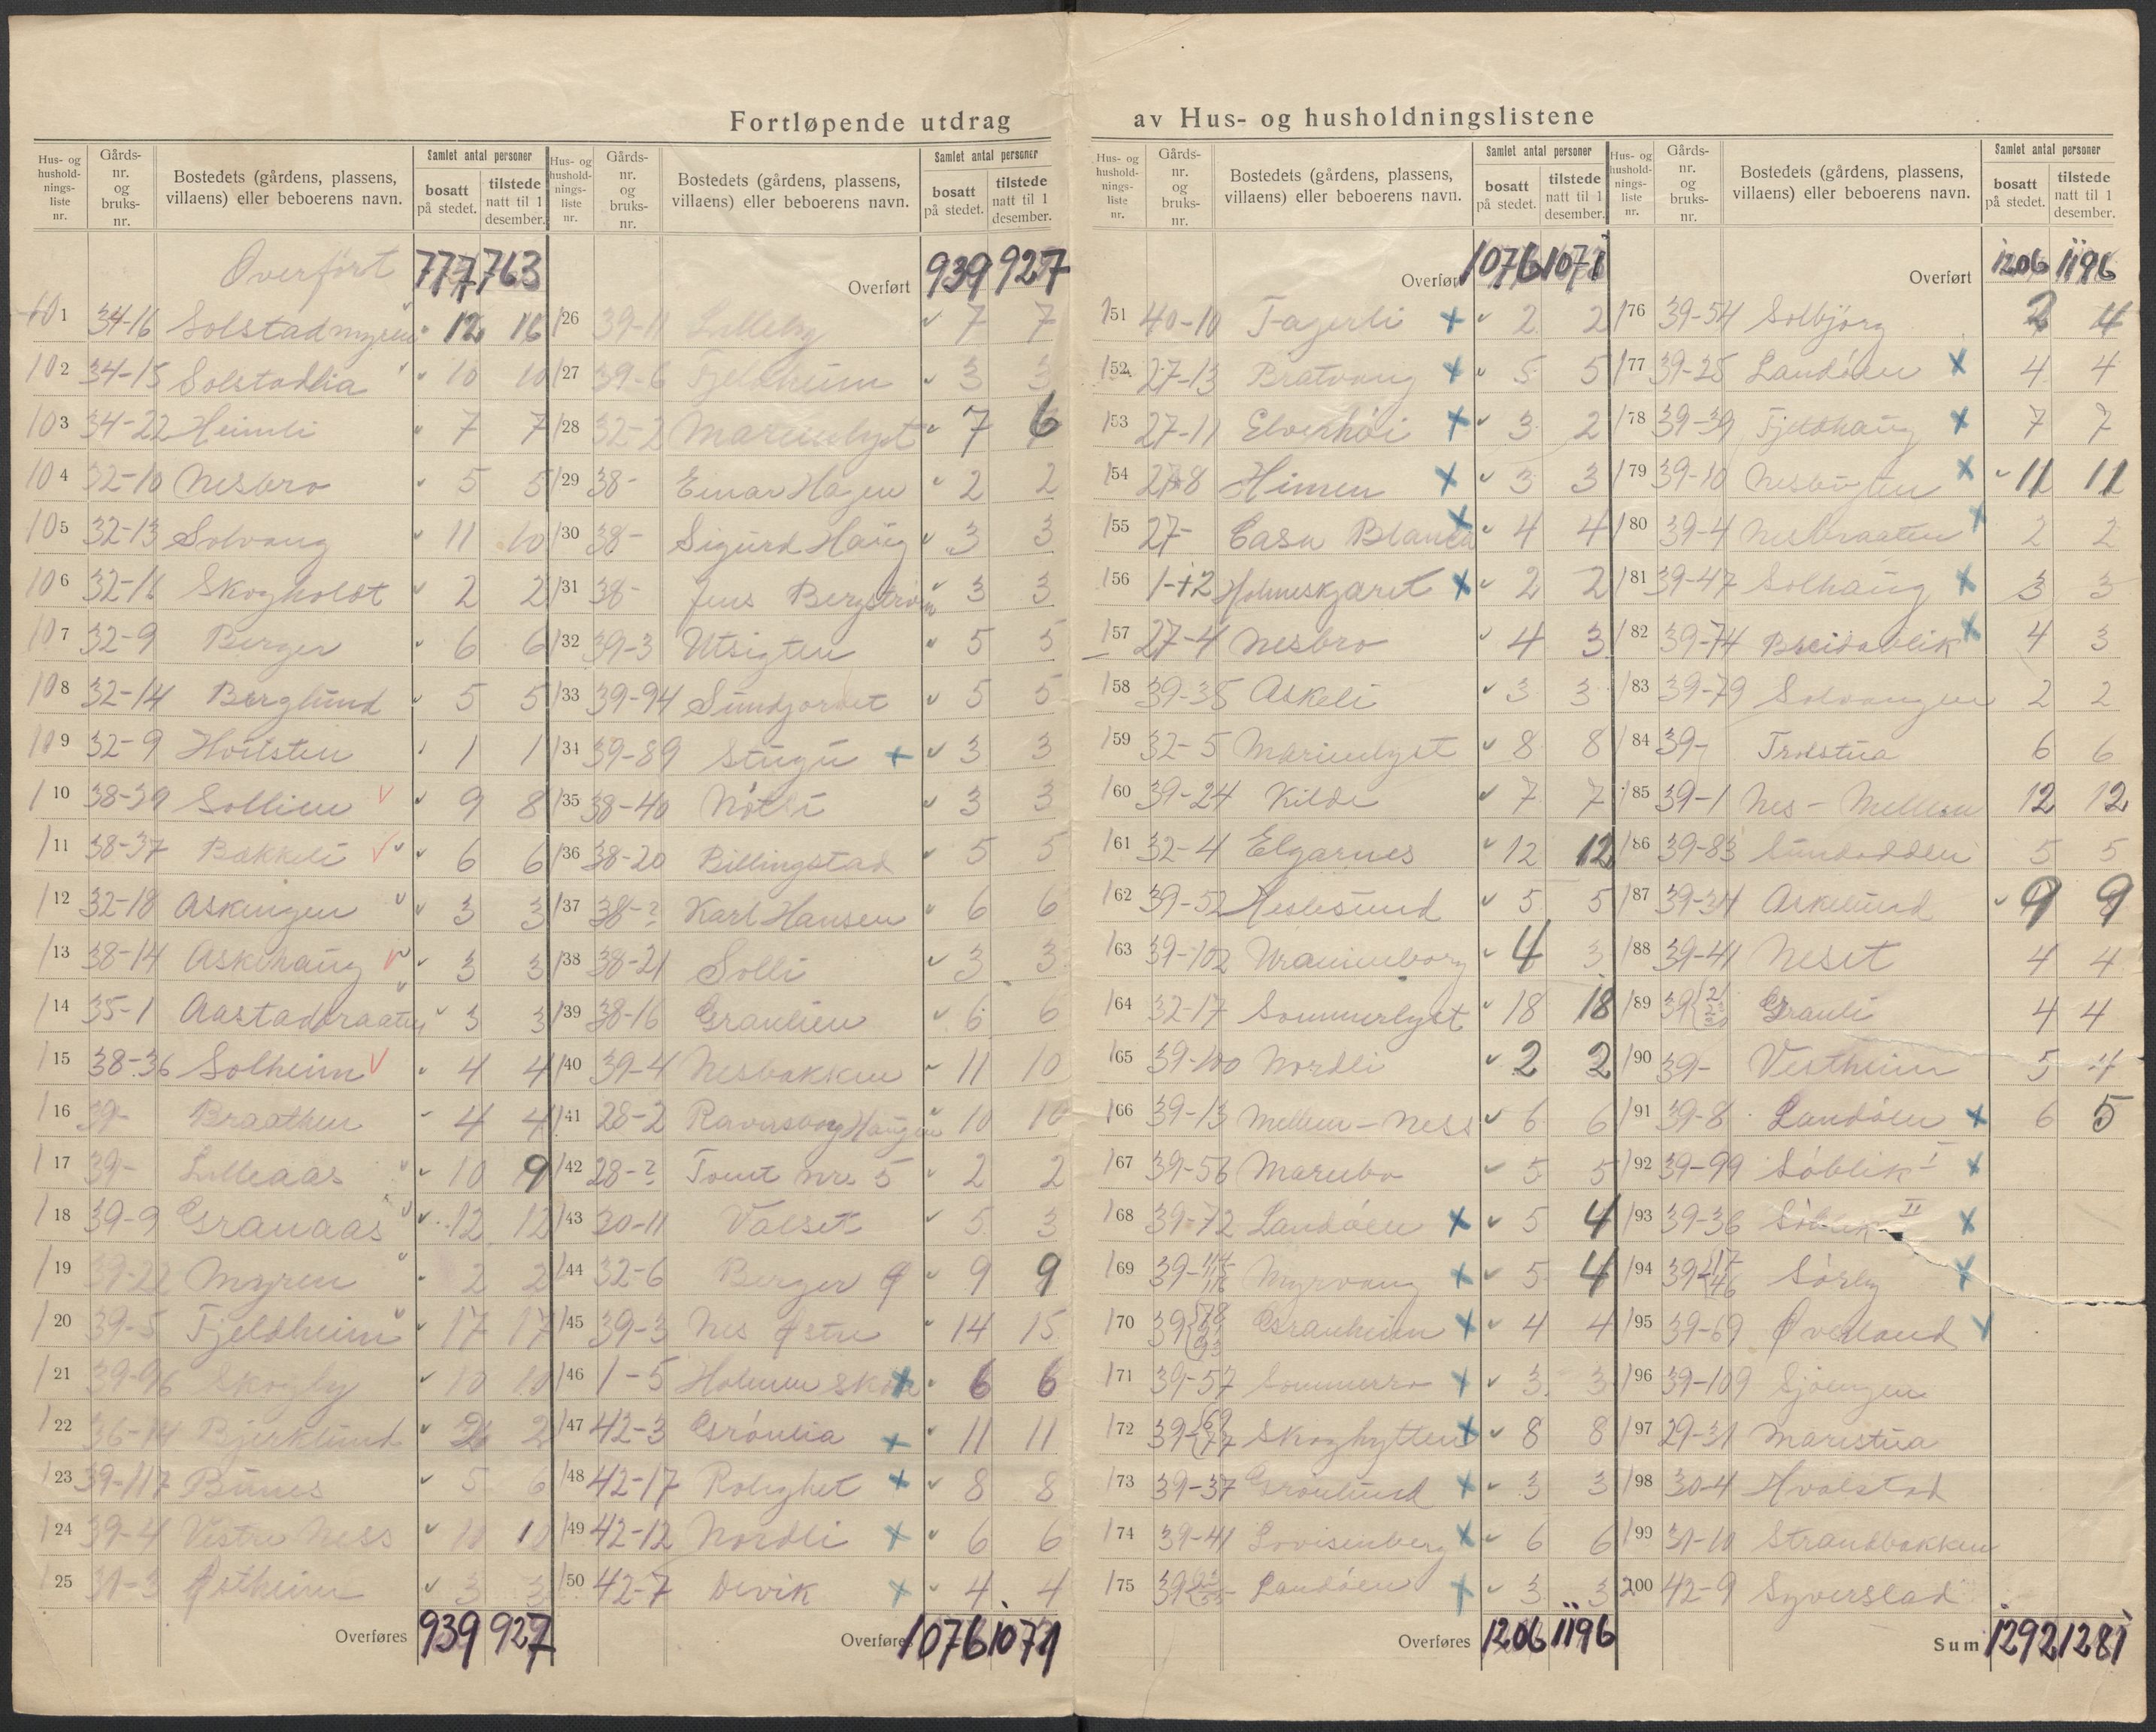 Fortløpende utdrag av Hus- og husholdningslistene
Hus- og husholdningsliste nr. Gårds-nr. og bruks-nr. Bostedets (gårdens, plassens, villaens) eller beboerens navn. Samlet antal personer bosatt på stedet. tilstede natt til 1 desember.
Overført 777 763
101 34-16 Solstadmyren 12 16
102 34-15 Solstadlia 10 10
103 34-22 Heimli 7 7
104 32-10 Nesbro 5 5
105 32-13 Solvang 11 10
106 32-16 Skogholdt 2 2
107 32-9 Berger 6 6
108 32-14 Berglund 5 5
109 32-9 Hvilsten 1 1
110 38-39 Sollien 9 8
111 38-37 Bakkeli 6 6
112 32-18 Askengen 3 3
113 38-14 Askehaug 3 3
114 35-1 Aastadbraaten 3 3
115 38-36 Solheim 4 4
116 39- Braathen 4 4
117 39- Lilleaas 10 9
118 39-9 Granaas 12 12
119 39-22 Myren 2 2
120 39-5 Fjeldheim 17 17
121 39-96 Skogly 10 10
122 36-14 Bjerklund 2
123 39-117 Bunes 5 6
124 39-4 Vestre Ness 10 10
125 31-3 Østheim 3 3
Overføres 939 927
Hus- og husholdningsliste nr. Gårds-nr. og bruks-nr. Bostedets (gårdens, plassens, villaens) eller beboerens navn. Samlet antal personer bosatt på stedet. tilstede natt til 1 desember.
Overført 939 927
126 39-11 Lilleby 7 7
127 39-6 Fjeldheim 3 3
128 32-2 Marienlyst 7 6
129 38- Einar Hagen 2 2
130 38- Sigurd Haug 3 3
131 38- Jens Bergstrøm 3 3
132 39-3 Utsigten 5 5
133 39-94 Sundjordet 5 5
134 39-89 Stugu 3 3
135 38-40 Nøtli 3 3
136 38-20 Billingstad 5 5
137 38-? Karl Hansen 6 6
138 38-21 Solli 3 3
139 38-16 Granlien 6 6
140 39-4 Nesbakken 11 10
141 28-2 Ravnsborg Haugen 10 10
142 28-? Tomt nr. 5 2 2
143 30-11 Valset 5 3
144 32-6 Berger Ø 9 9
145 39-3 Nes Østre 14 15
146 1-5 Holmen skole 6 6
147 42-3 Grønlia 11 11
148 42-17 Rolighet 8 8
149 42-12 Nordli 6 6
150 42-7 Devik 4 4
Overføres 1076 1071
Hus- og husholdningsliste nr. Gårds-nr. og bruks-nr. Bostedets (gårdens, plassens, villaens) eller beboerens navn. Samlet antal personer bosatt på stedet. tilstede natt til 1 desember.
Overført 1076 1071
151 40-10 Fagerli 2 2
152 27-13 Bratvang 5 5
153 27-11 Elverhøi 3 2
154 27-8 Himen 3 3
155 27- Casa Blanca 4 4
156 1-+2 Holmeskjæret 2 2
157 27-4 Nesbro 4 3
158 39-35 Askeli 3 3
159 32-5 Marienlyst 8 8
160 39-24 Kilde 7 7
161 32-4 Elgarnes 12 12
162 39-52 Heslesund 5 5
163 39-102 Uranienborg 4 3
164 32-17 Sommerlyst 18 18
165 39-100 Nordli 2 2
166 39-13 Mellem-Ness 6 6
167 39-56 Marebo 5 5
168 39-72 Landøen 5 4
169 39- Myrvang 5 4
170 39 Granheim 4 4
171 39-57 Sommerro 3 3
172 39- Skoghytten 8 8
173 39-37 Grønlund 3 3
174 39-41 Lovisenberg 6 6
175 39 Landøen 3 3
Overføres 1206 1196
Hus- og husholdningsliste nr. Gårds-nr. og bruks-nr. Bostedets (gårdens, plassens, villaens) eller beboerens navn. Samlet antal personer bosatt på stedet. tilstede natt til 1 desember.
Overført 1206 1196
176 39-54 Solbjörg 2 4
177 39-25 Landøen 4 4
178 39-39 Fjeldhaug 7 7
179 39-10 Nesbugten 11 11
180 39-4 Nesbraaten 2 2
181 39-47 Solhaug 3 3
182 39-74 Breidablik 4 3
183 39-79 Solvangen 2 2
184 39- Trolstua 6 6
185 39-1 Nes-Mellem 12 12
186 39-83 Sundodden 5 5
187 39-34 Askelund 9 9
188 39-41 Neset 4 4
189 39 Granli 4 4
190 39- Vestheim 5 4
191 39-8 Landøen 6 5
192 39-99 Søblik I
193 39-36 Søblik II
194 39-{17 46 Sørby
195 39-69 Øverland
196 39-109 Sjøengen
197 29-31 Maristua
198 30-4 Hvalstad
199 31-10 Strandbakken
200 42-9 Syverstad
Sum 1292 1281